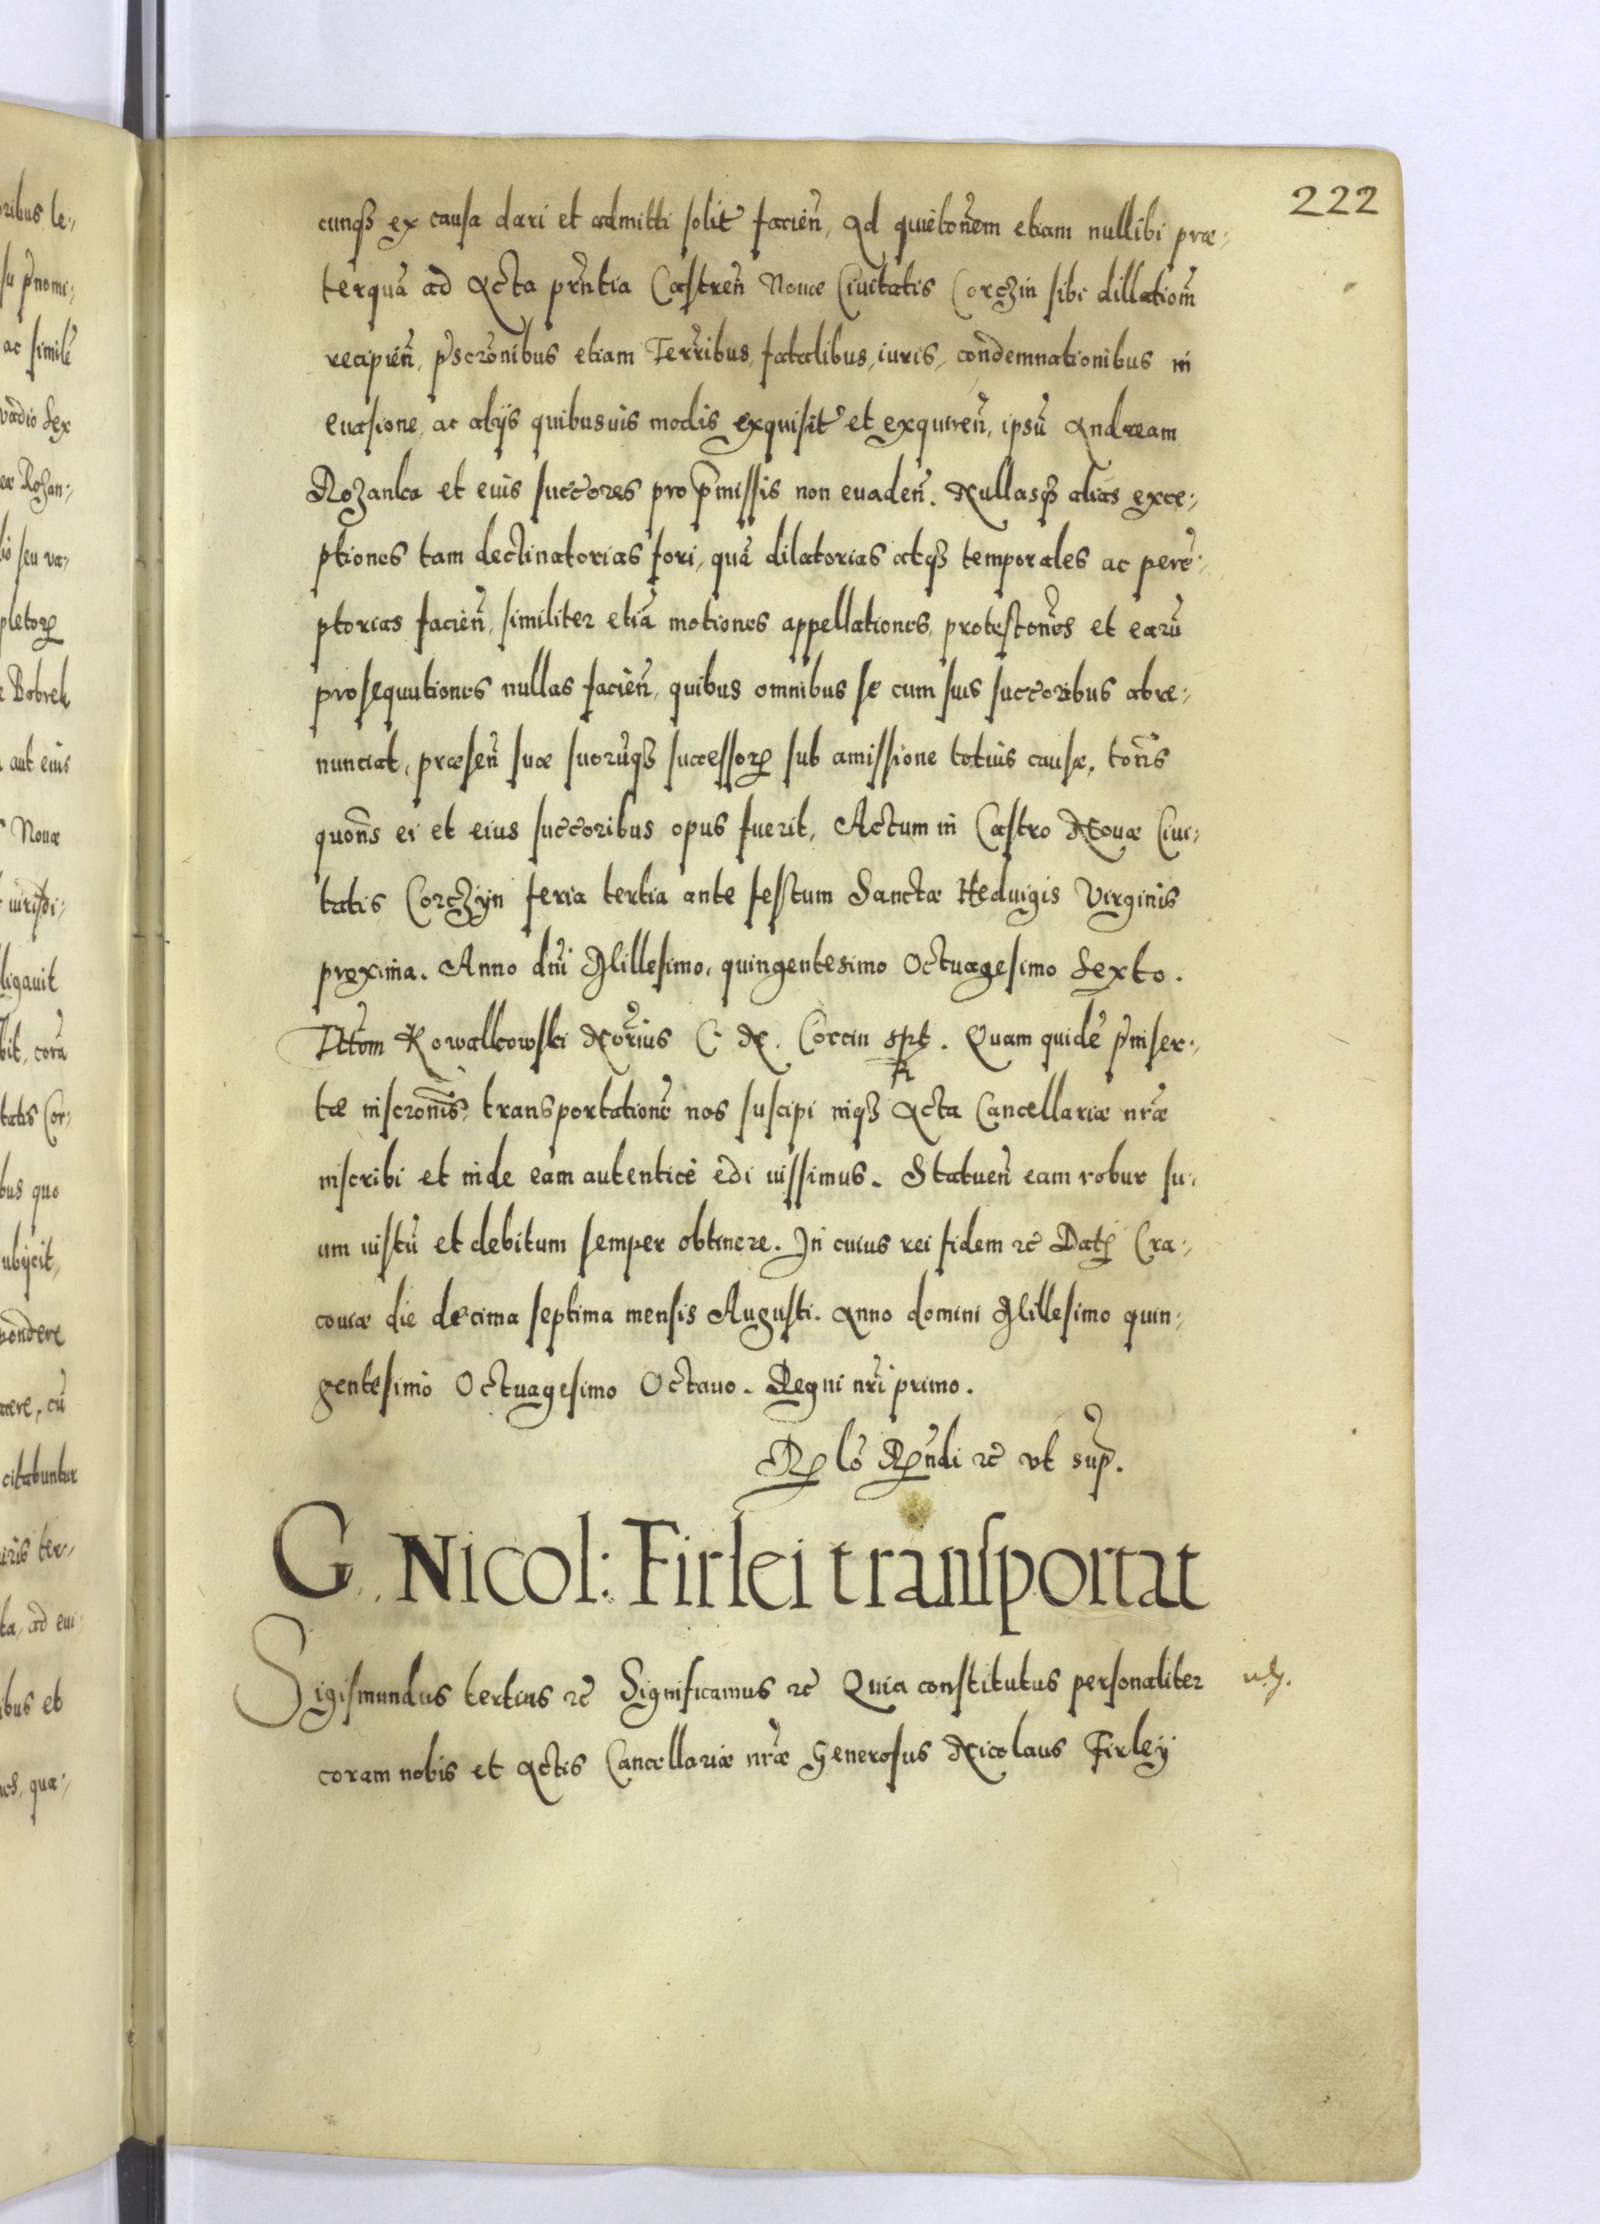 222
cunqȝ ex causa dari et admitti solit' facien̄, Ad quietoñem etiam nullibi præ-
terquā ad Acta pñtia Castren̄ Nouæ Ciuitatis Corczin sibi dillatiom̄
recipien̄, pscrōnibus etiam Terr̄ibus, fatalibus, iuris, condemnationibus in
euasione, ac alijs quibusuis modis exquisit' et exquiren̄, ipsū Andream
Rozanka et eius succores pro p̄missis non euaden̄. Nullasqȝ alias exce-
ptiones tam declinatorias fori, quā dilatorias atqȝ temporales ac perē-
ptorias facien̄, similiter etiā motiones appellationes, protestōnes et earū
prosequutiones nullas facien̄, quibus omnibus se cum suis succoribus abre-
nunciat, præsen̄ suæ suorūqȝ successorꝝ sub amissione totius causæ, tōns
quōns ei et eius succoribus opus fuerit, Actum in Castro Nouæ Ciui-
tatis Corczyn feria tertia ante festum Sanctæ Heduigis Virginis
proxima. Anno dn̄i Millesimo, quingentesimo Octuagesimo Sexto.
Kowalkowski Notr̄ius C. N. Corcin spt. Quam quidē p̄inser-
tæ inscrōnis transportationē nos suscipi inqȝ Acta Cancellariæ nr̄æ
inscribi et inde eam autenticè edi iussimus. Statuen̄ eam robur su-
um iustū et debitum semper obtinere. In cuius rei fidem ꝛc̄ Datꝭ Cra-
couiæ die decima septima mensis Augusti. Anno domini Millesimo quin-
gentesimo Octuagesimo Octauo. Regni nr̄i primo.
Rꝑ lō Rꝑn̄di ꝛc̄ vt sup̄.
G. Nicol: Firlei transportat
Sigismundus tertius ꝛc̄ Significamus ꝛc̄ Quia constitutus personaliter
coram nobis et Actis Cancellariæ nr̄æ Generosus Nicolaus Firley